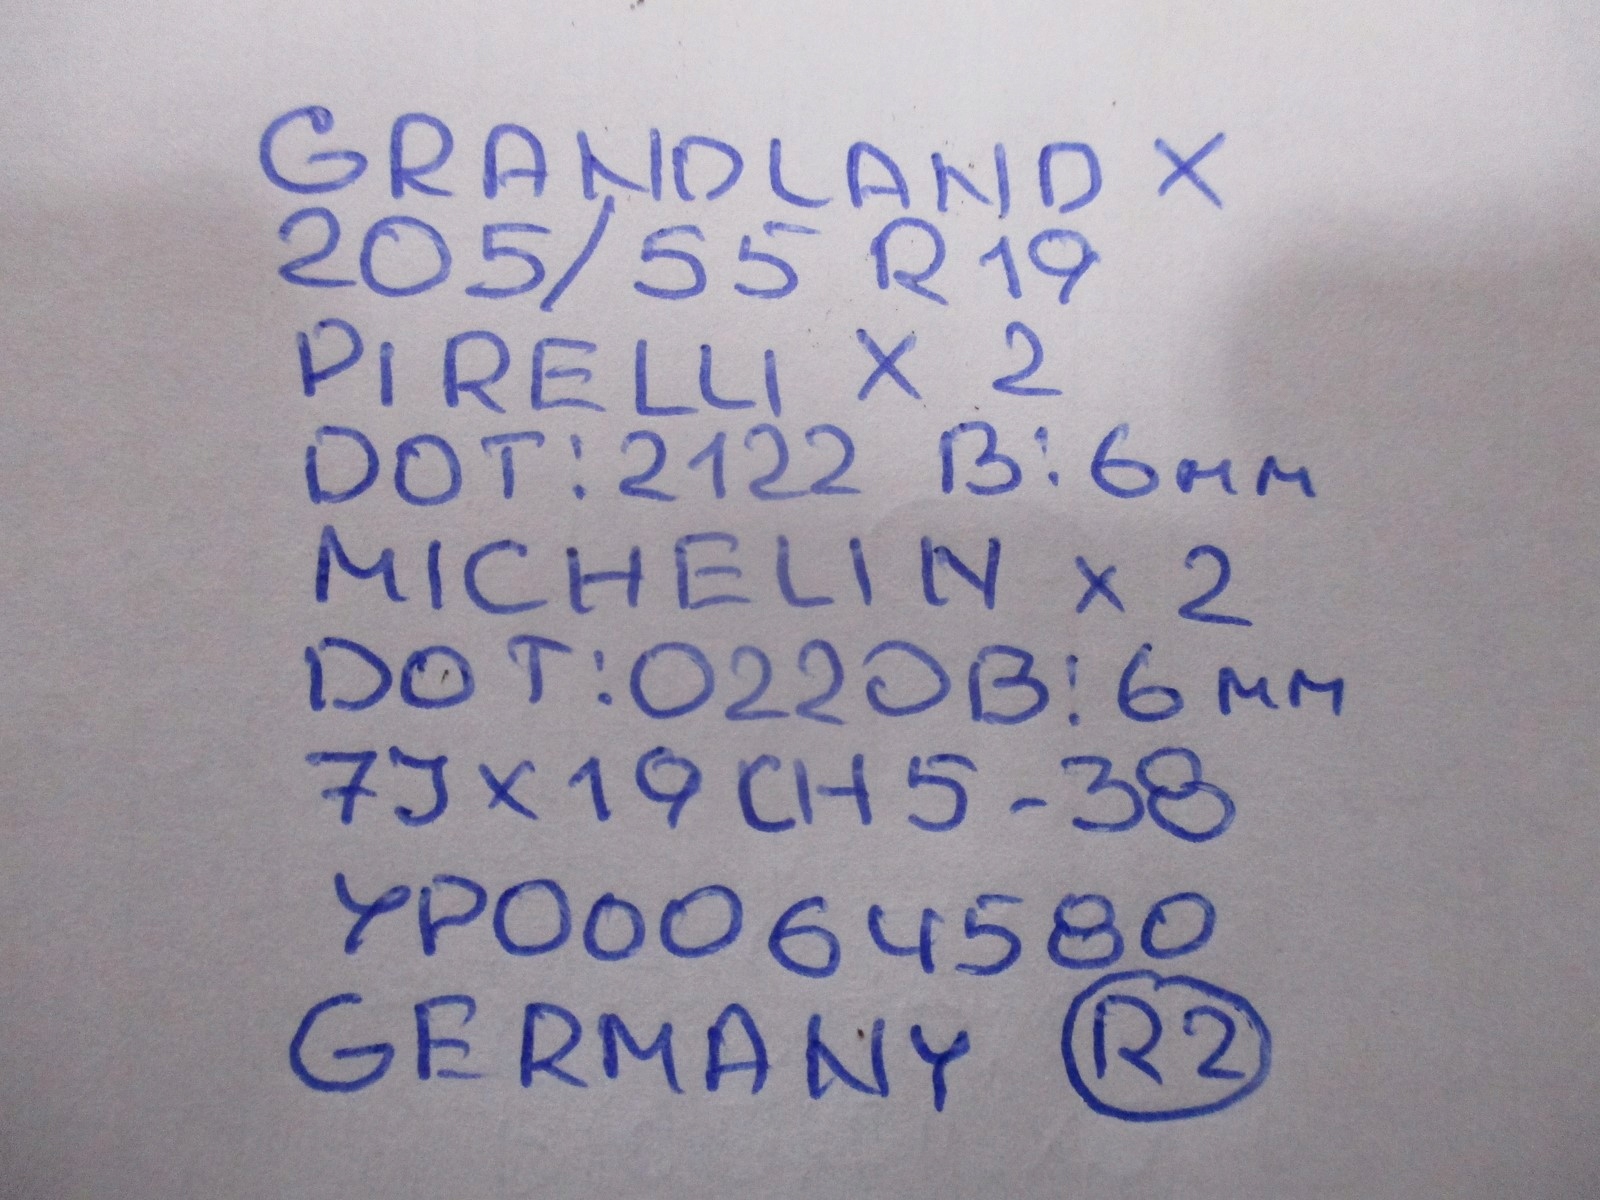 GRANDLAND X
205/55 R19
PIRELLI X 2
DOT:2122 B:6мм
MICHELIN x 2
DOT:0220 B:6мм
7Jx19 CH5-38
YP00064580
GERMANY R2